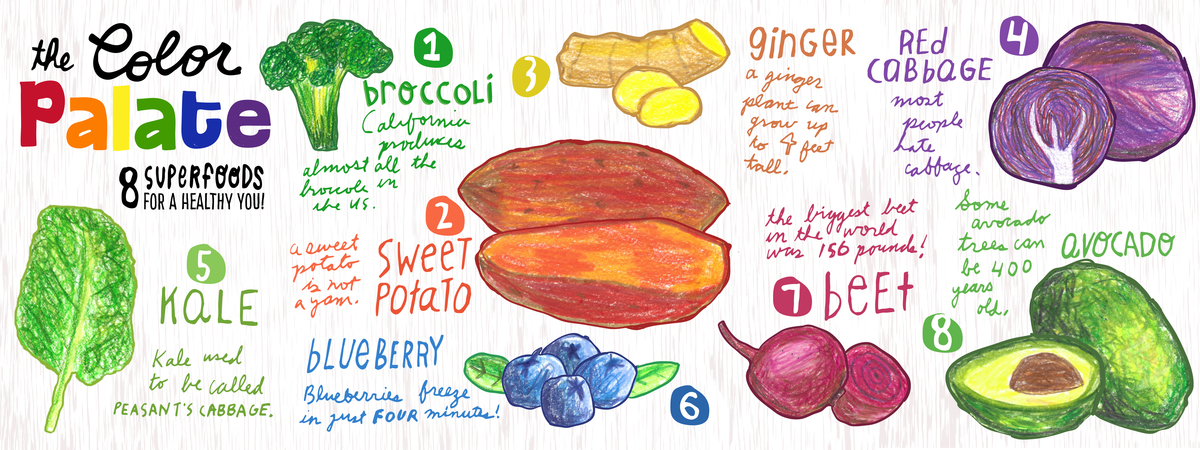 the Color
Palate
8 SUPERFOODS
FOR A HEALTHY YOU!
1
broccoli
California
produces
almost all the
broccoli in
the US.
2
SWEET
POTATO
a sweet
potato
is not
a yam.
3
ginger
a ginger
plant can
grow up
to 4 feet
tall.
4
REd
CABBAGE
most
people
hate
cabbage.
5
KALE
Kale used
to be called
PEASANT'S CABBAGE.
BLUEBERRY
Blueberries freeze
in just FOUR minutes!
6
the biggest beet
in the world
was 156 pounds!
7
bEEt
8
avocado
Some
avocado
trees can
be 400
years
old.